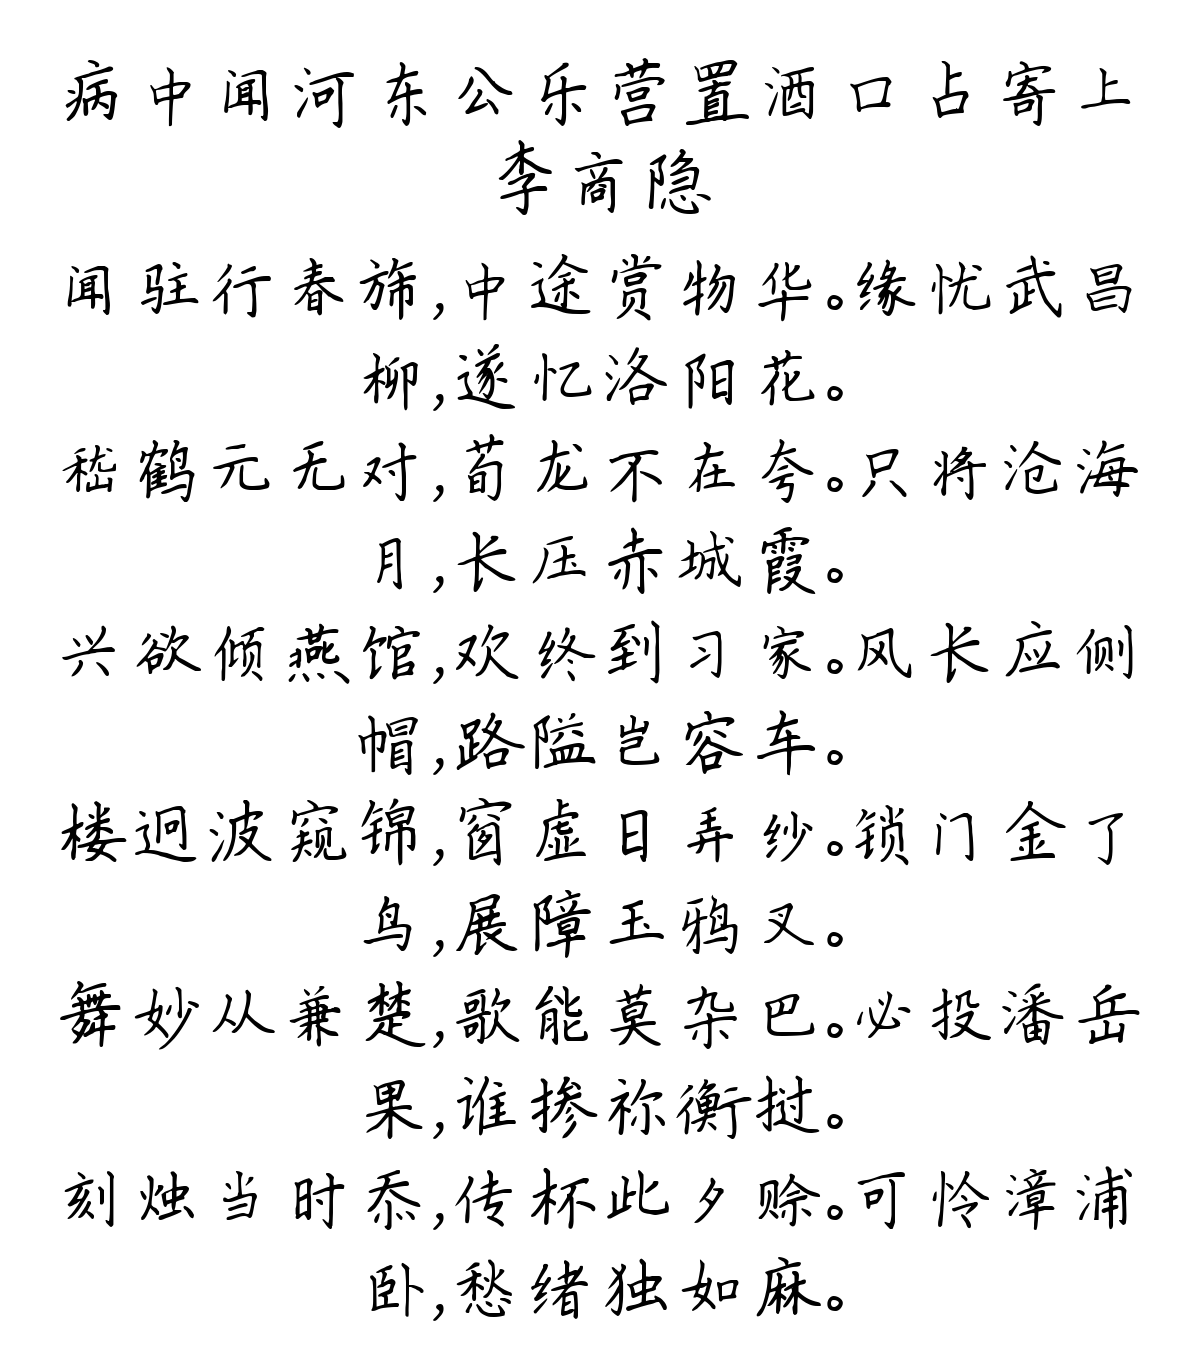 病中闻河东公乐营置酒口占寄上
李商隐
闻驻行春旆,中途赏物华。缘忧武昌
柳,遂忆洛阳花。
嵇鹤元无对,荀龙不在夸。只将沧海
月,长压赤城霞。
兴欲倾燕馆,欢终到习家。风长应侧
帽,路隘岂容车。
楼迥波窥锦,窗虚日弄纱。锁门金了
鸟,展障玉鸦叉。
舞妙从兼楚,歌能莫杂巴。必投潘岳
果,谁掺祢衡挝。
刻烛当时忝,传杯此夕赊。可怜漳浦
卧,愁绪独如麻。